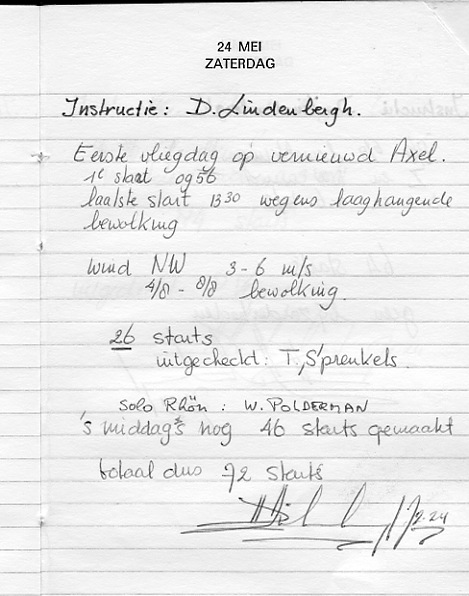 24 MEI
ZATERDAG
Instructie: D. Lindenbergh.
Eerste vliegdag op vernieuwd Axel.
1e start 0956
laatste start 1330 wegens laaghangende
bewolking
wind NW 3-6 m/s
4/8 - 8/8 bewolking.
26 starts
uitgecheckt: T. Sprenkels.
Solo Rhön: W. POLDERMAN
's middag's nog 46 starts gemaakt
totaal dus 72 starts